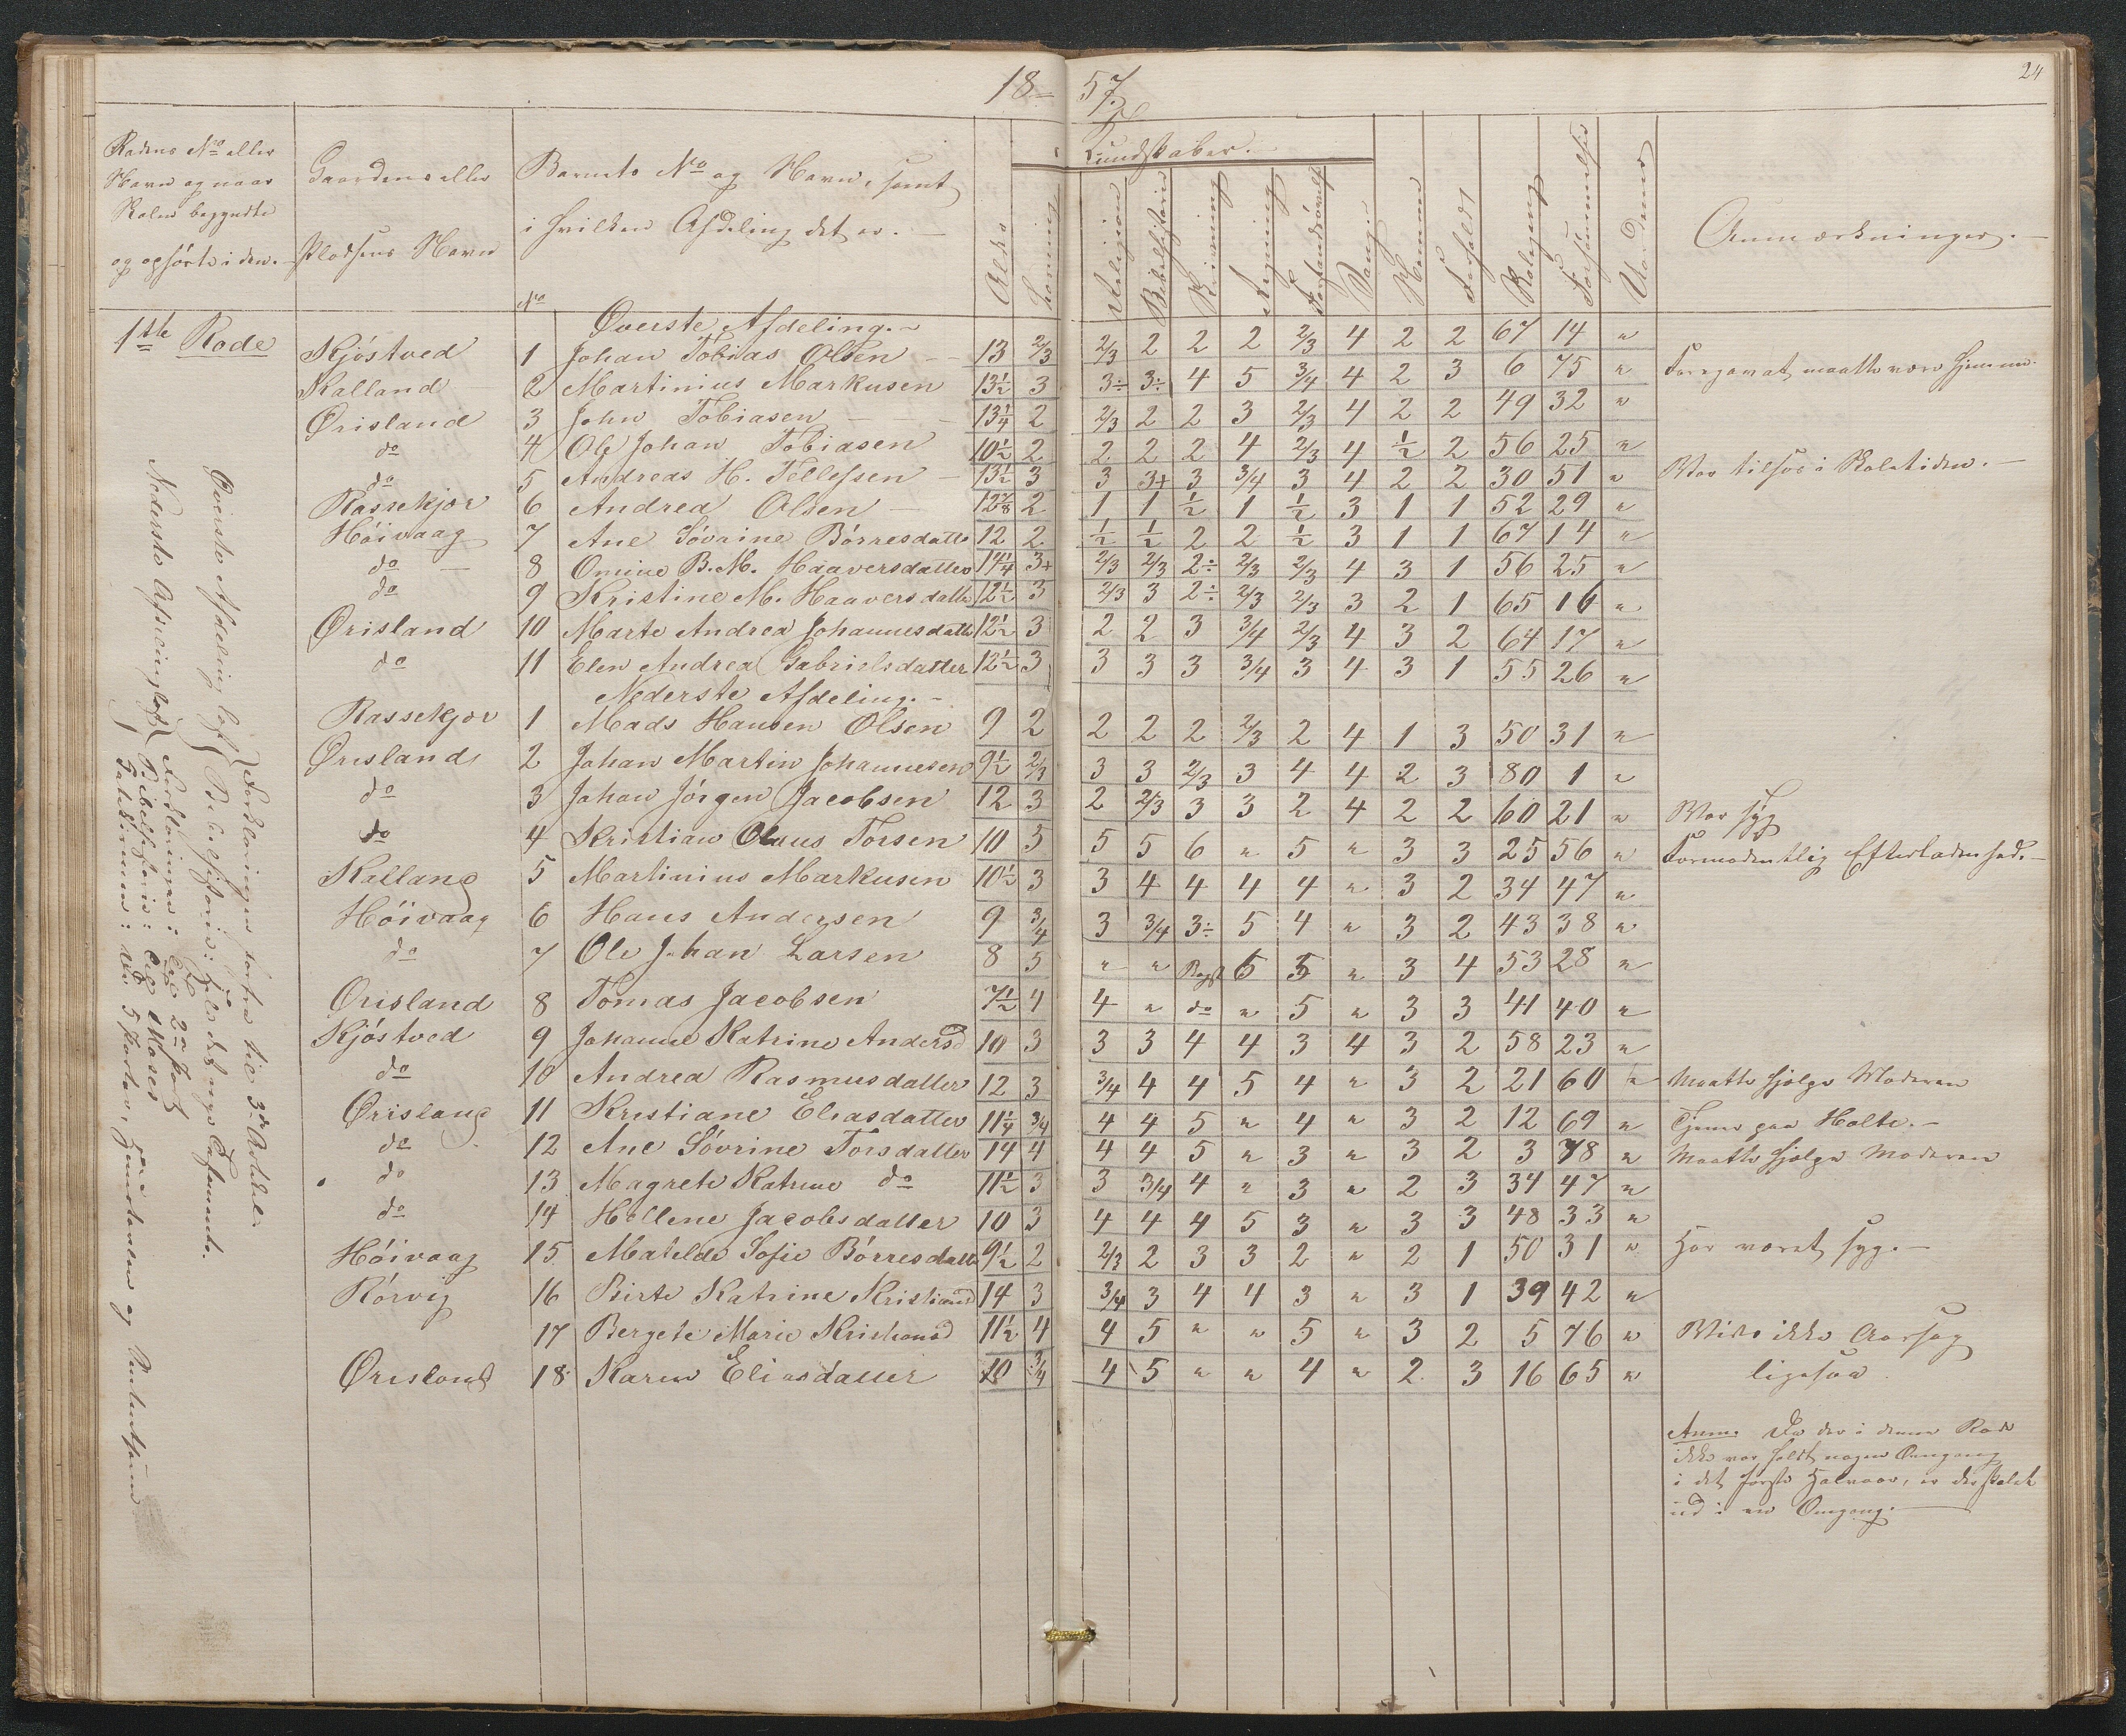 18 57.
24
Rodens No eller Navn og naar Skolen begyndte og ophørte i den.
Gaardens eller Pladsens Navn
Barnets No og Navn, samt i hvilken Afdeling det er.
Alder
Læsning
Kundskaber.
Religion
Bibelhistorie
Skrivning
Regning
Forstandsøvelse
Sang
Nemme
Forhold
Skolegang
Forsømmelse
Anmærkninger.
No
1ste Rode
Øverste Afdeling.
Kjöstved 1 Johan Tobias Olsen 13 2/3 2/3 2 2 2 2/3 4 2 2 67 14 "
Kalland 2 Martinius Markusen 13½ 3 3÷ 3÷ 4 5 3/4 4 2 3 6 75 " Foregav at maatte være hjemme.
Ørisland 3 John Tobiasen 13¼ 2 2/3 2 2 3 2/3 4 2 2 49 32 "
do 4 Ole Johan Tobiasen 10½ 2 2 2 2 4 2/3 4 ½ 2 56 25 "
do 5 Andreas H. Tellefsen 13½ 3 3 3+ 3 3/4 3 4 2 2 30 51 " Var tilsøs i Skoletiden.
Rassekjær 6 Andrea Olsen 12⅞ 2 1 1 ½ 1 ½ 3 1 1 52 29 "
Höivaag 7 Ane Sövrine Börresdatter 12 2 ½ ½ 2 2 ½ 3 1 1 67 14 "
do 8 Omine B. M. Haaversdatter 14¼ 3+ 2/3 2/3 2÷ 2/3 2/3 4 3 1 56 25 "
do 9 Kristine M. Haaversdatter 12½ 3 2/3 3 2÷ 2/3 2/3 3 2 1 65 16 "
Ørisland 10 Marte Andrea Johannesdatter 12½ 3 2 2 3 3/4 2/3 4 3 2 64 17 "
do 11 Elen Andrea Gabrielsdatter 12½ 3 3 3 3 3/4 3 4 3 1 55 26 "
Nederste Afdeling.
Rassekjær 1 Mads Hansen Olsen 9 2 2 2 2 2/3 2 4 1 3 50 31 "
Ørisland 2 Johan Martin Johannesen 9½ 2/3 3 3 2/3 3 4 4 2 3 80 1 "
do 3 Johan Jörgen Jacobsen 12 3 2 2/3 3 3 2 4 2 2 60 21 " Var syg
do 4 Kristian Olaus Torsen 10 5 5 5 6 " 5 " 3 3 25 56 " Formodentlig Efterladenhed.
Kalland 5 Martinius Markusen 10½ 3 3 4 4 4 4 " 3 2 34 47 "
Höivaag 6 Hans Andersen 9 3/4 3 3/4 3÷ 5 4 " 3 2 43 38 "
do 7 Ole Johan Larsen 8 5 " " Bogst 5 5 " 3 4 53 28 "
Ørisland 8 Tomas Jacobsen 7½ 4 4 " do " 5 " 3 3 41 40 "
Kjöstved 9 Johanne Katrine Andersd 10 3 3 3 4 4 3 4 3 2 58 23 "
do 10 Andrea Rasmusdatter 12 3 3/4 4 4 5 4 " 3 2 21 60 " Maatte hjelpe Moderen
Ørisland 11 Kristiane Eliasdatter 11¼ 3/4 4 4 5 " 4 " 3 2 12 69 " Tjener paa Holte.
do 12 Ane Sövrine Torsdatter 14 4 4 4 5 " 3 " 3 2 3 78 " Maatte hjelpe Moderen
do 13 Magrete Katrine do 11½ 3 3 3/4 4 " 3 " 2 3 34 47 "
do 14 Hellene Jacobsdatter 10 3 4 4 4 5 3 " 3 3 48 33 "
Höivaag 15 Matelde Sofie Börresdatter 9½ 2 2/3 2 3 3 2 " 2 1 50 31 " Har været syg.
Rörvig 16 Birte Katrine Kristiansd 14 3 3/4 3 4 4 3 " 3 1 39 42 "
17 Bergete Marie Kristiansd 11½ 4 4 5 " " 5 " 3 2 5 76 " Vides ikke Aarsag
Ørisland 18 Karen Eliasdatter 10 3/4 4 5 " " 4 " 2 3 16 65 " ligesaa
Anm. Da der i denne Rode
ikke var holdt nogen Omgang
i det første Halvaar, er der
ud i en Omgang.
Øverste Afdeling læst
Forklaringen forfra til 3die Artikel
Bibelhistorie: hele det nye Testamente.
Nederste Afdeling læst
Forklaringen: til 2den Part
Bibelhistorie: til Moses
Katekismen: de 5 Parter,